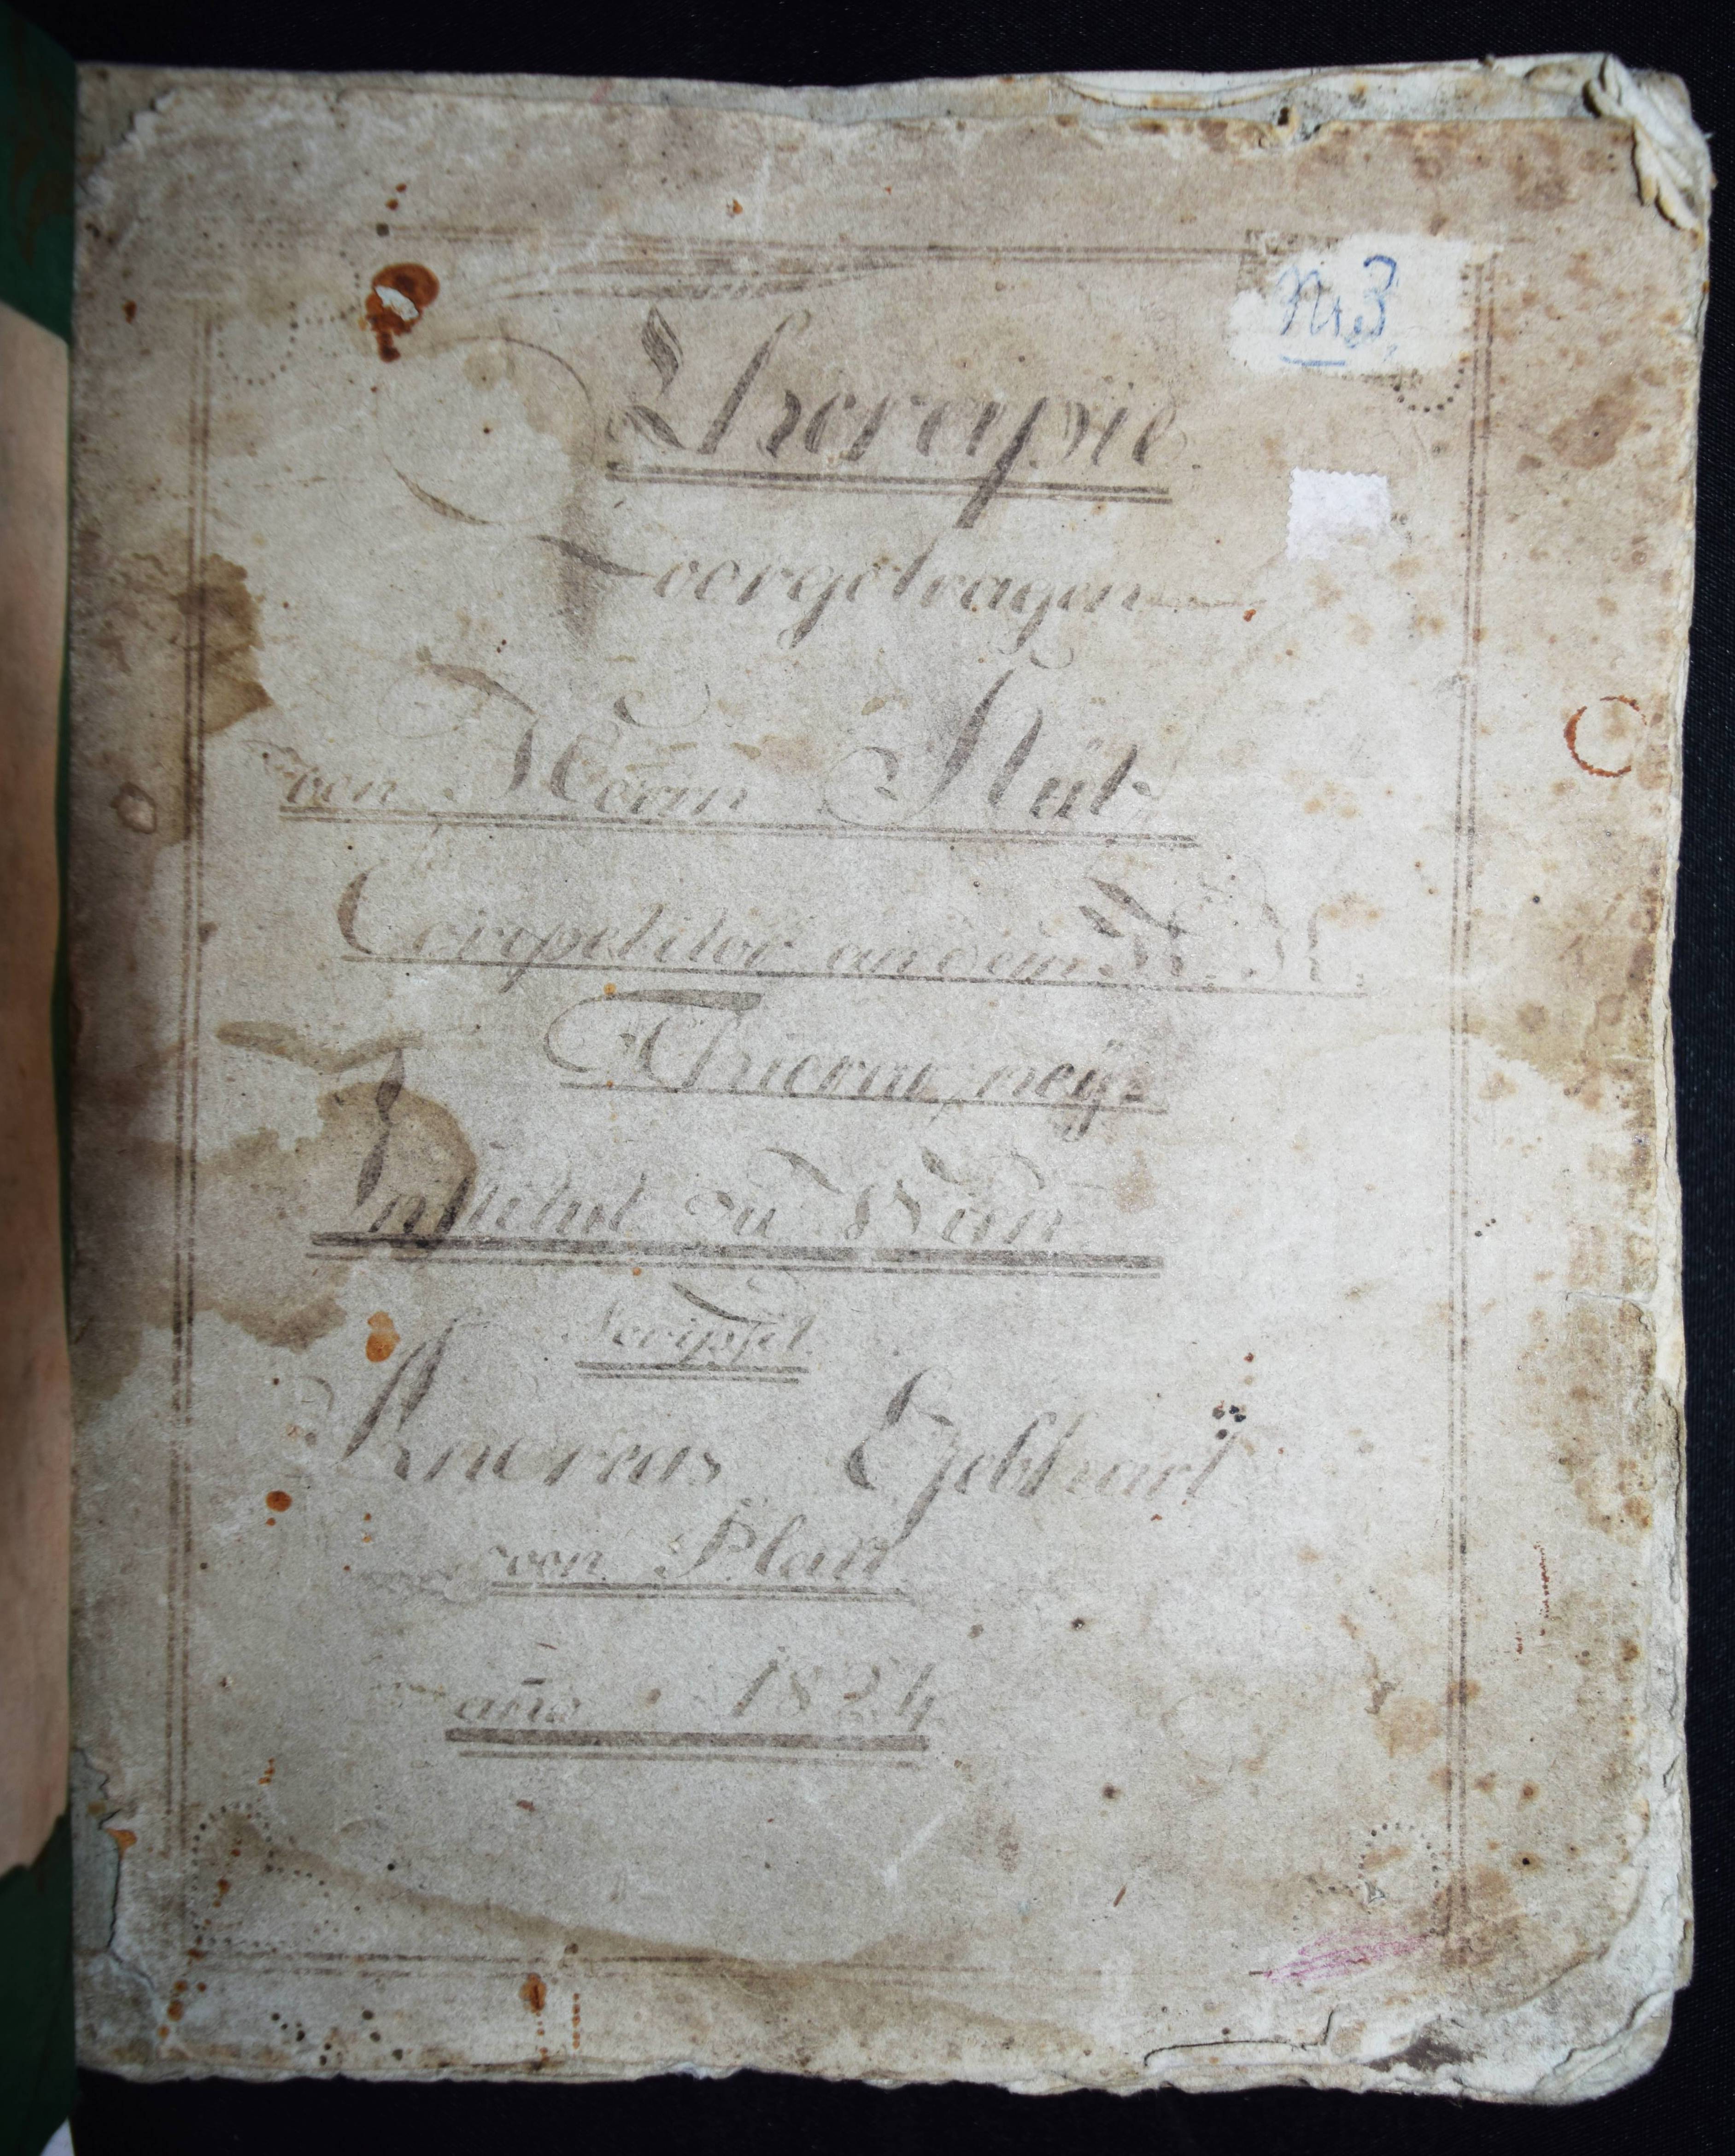 Nr 3
Therapie
vorgetragen
von Herrn Stütz
Corepetitor an dem K. K.
Thierarzney=
Institut zu Wien
Scripsit
Andreas Gebhart
von Plan
año 1824